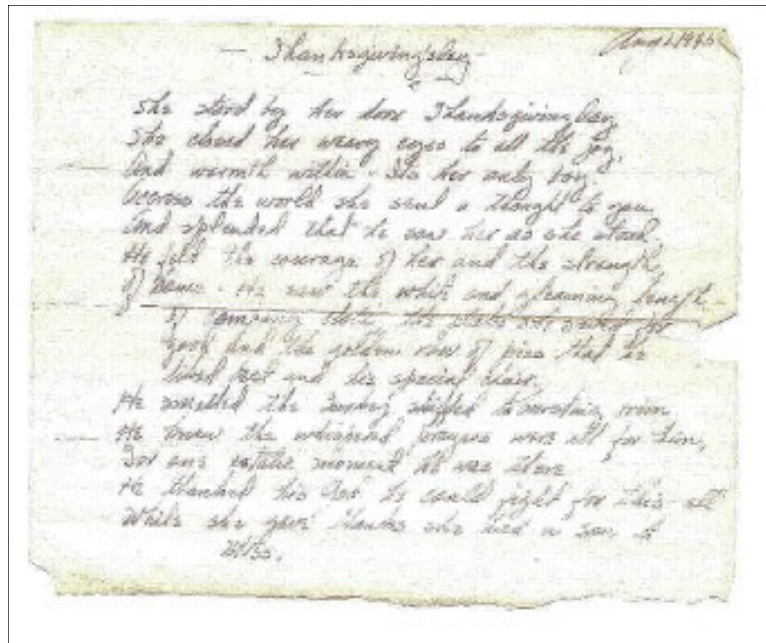 Thanksgiving Day
She stood by her door Thanksgiving Day
She closed her weary eyes to all the joy,
And warmth within - her only boy.
Across the world she sent a thought to you
And splended that he saw her as she stood,
He felt the courage of her and the strength,
of home - He saw the white and gleaming
of company the she saved for
good and the golden row of pies that he
loved best and his special chair.
He smelled the turkey stuffed to
He knew the whispered prayers were all for him,
For one moment he was there
He thanked his God he could fight for this - all
While she gave thanks she had a son to